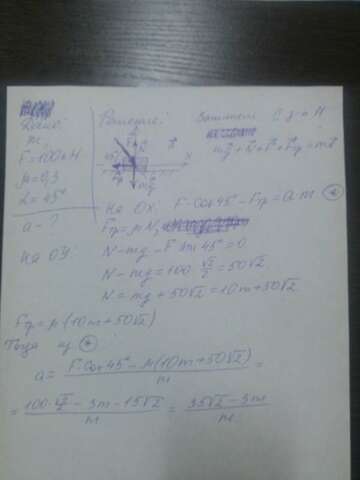 Дано:
m,
F=100 Н
μ=0,3
α=45°
a-?
Решение:
Запишем II з-н Н
mg+N+F+Fтр=ma
x
mg
на OX: F·Cos45°-Fтр=a·m *
Fтр=μN,
на OY:
N-mg-F sin45°=0
N-mg=100 √2/2=50√2
N=mg+50√2=10m+50√2
Fтр=μ(10m+50√2)
Тогда из *
a= F·Cos45°-μ(10m+50√2)/m =
= 100·√2/2-3m-15√2/m = 35√2-3m/m